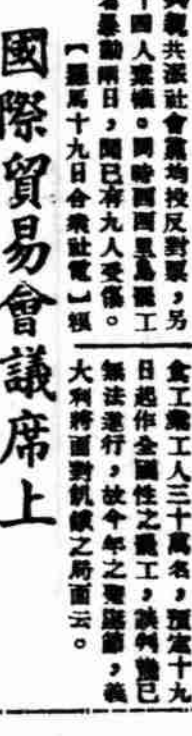 與親共派社會黨均投反對票，另
十四人棄權。同時西西里島罷工
暴動兩日，聞已有九人受傷。
【羅馬十九日合衆社電】
食工業工人三十萬名，預定十九
日起作全國性之罷工，談判已
無法進行，故今年之聖誕節，義
大利將面對飢餓之局面云。
國際貿易會議席上